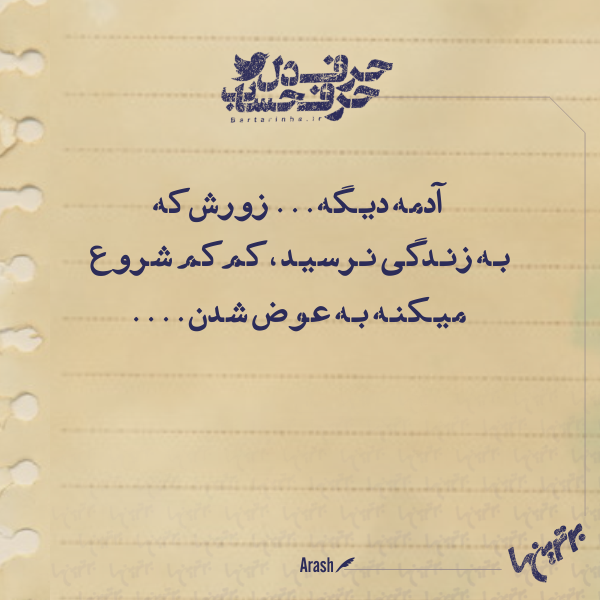 حرف دل
حرف حساب
Bartarinha.ir
آدمه دیگه... زورش که
به زندگی نرسید، کم کم شروع
میکنه به عوض شدن....
Arash
برترین‌ها